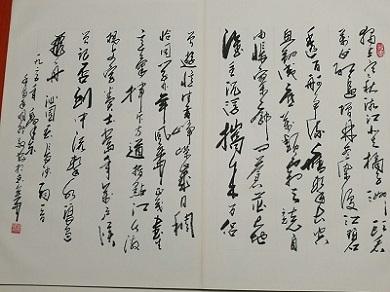 独立寒秋湘江北去橘子洲头看
万山红遍层林尽染漫江碧
透百舸争流鹰击长空
鱼翔浅底万类霜天竞自
由怅寥廓问苍茫大地
谁主沉浮携来百侣
曾游忆往昔峥嵘岁月稠
恰同学少年风华正茂书生
意气挥斥方遒指点江山激
扬文字粪土当年万户侯
曾记否到中流击水浪遏
飞舟 沁园春 长沙
一九二五年